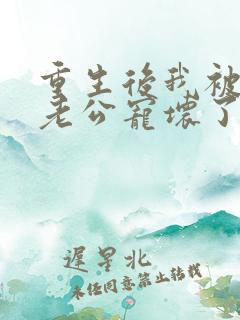 重生後我被
老公寵壞了
遲星北
未經同意禁止轉載